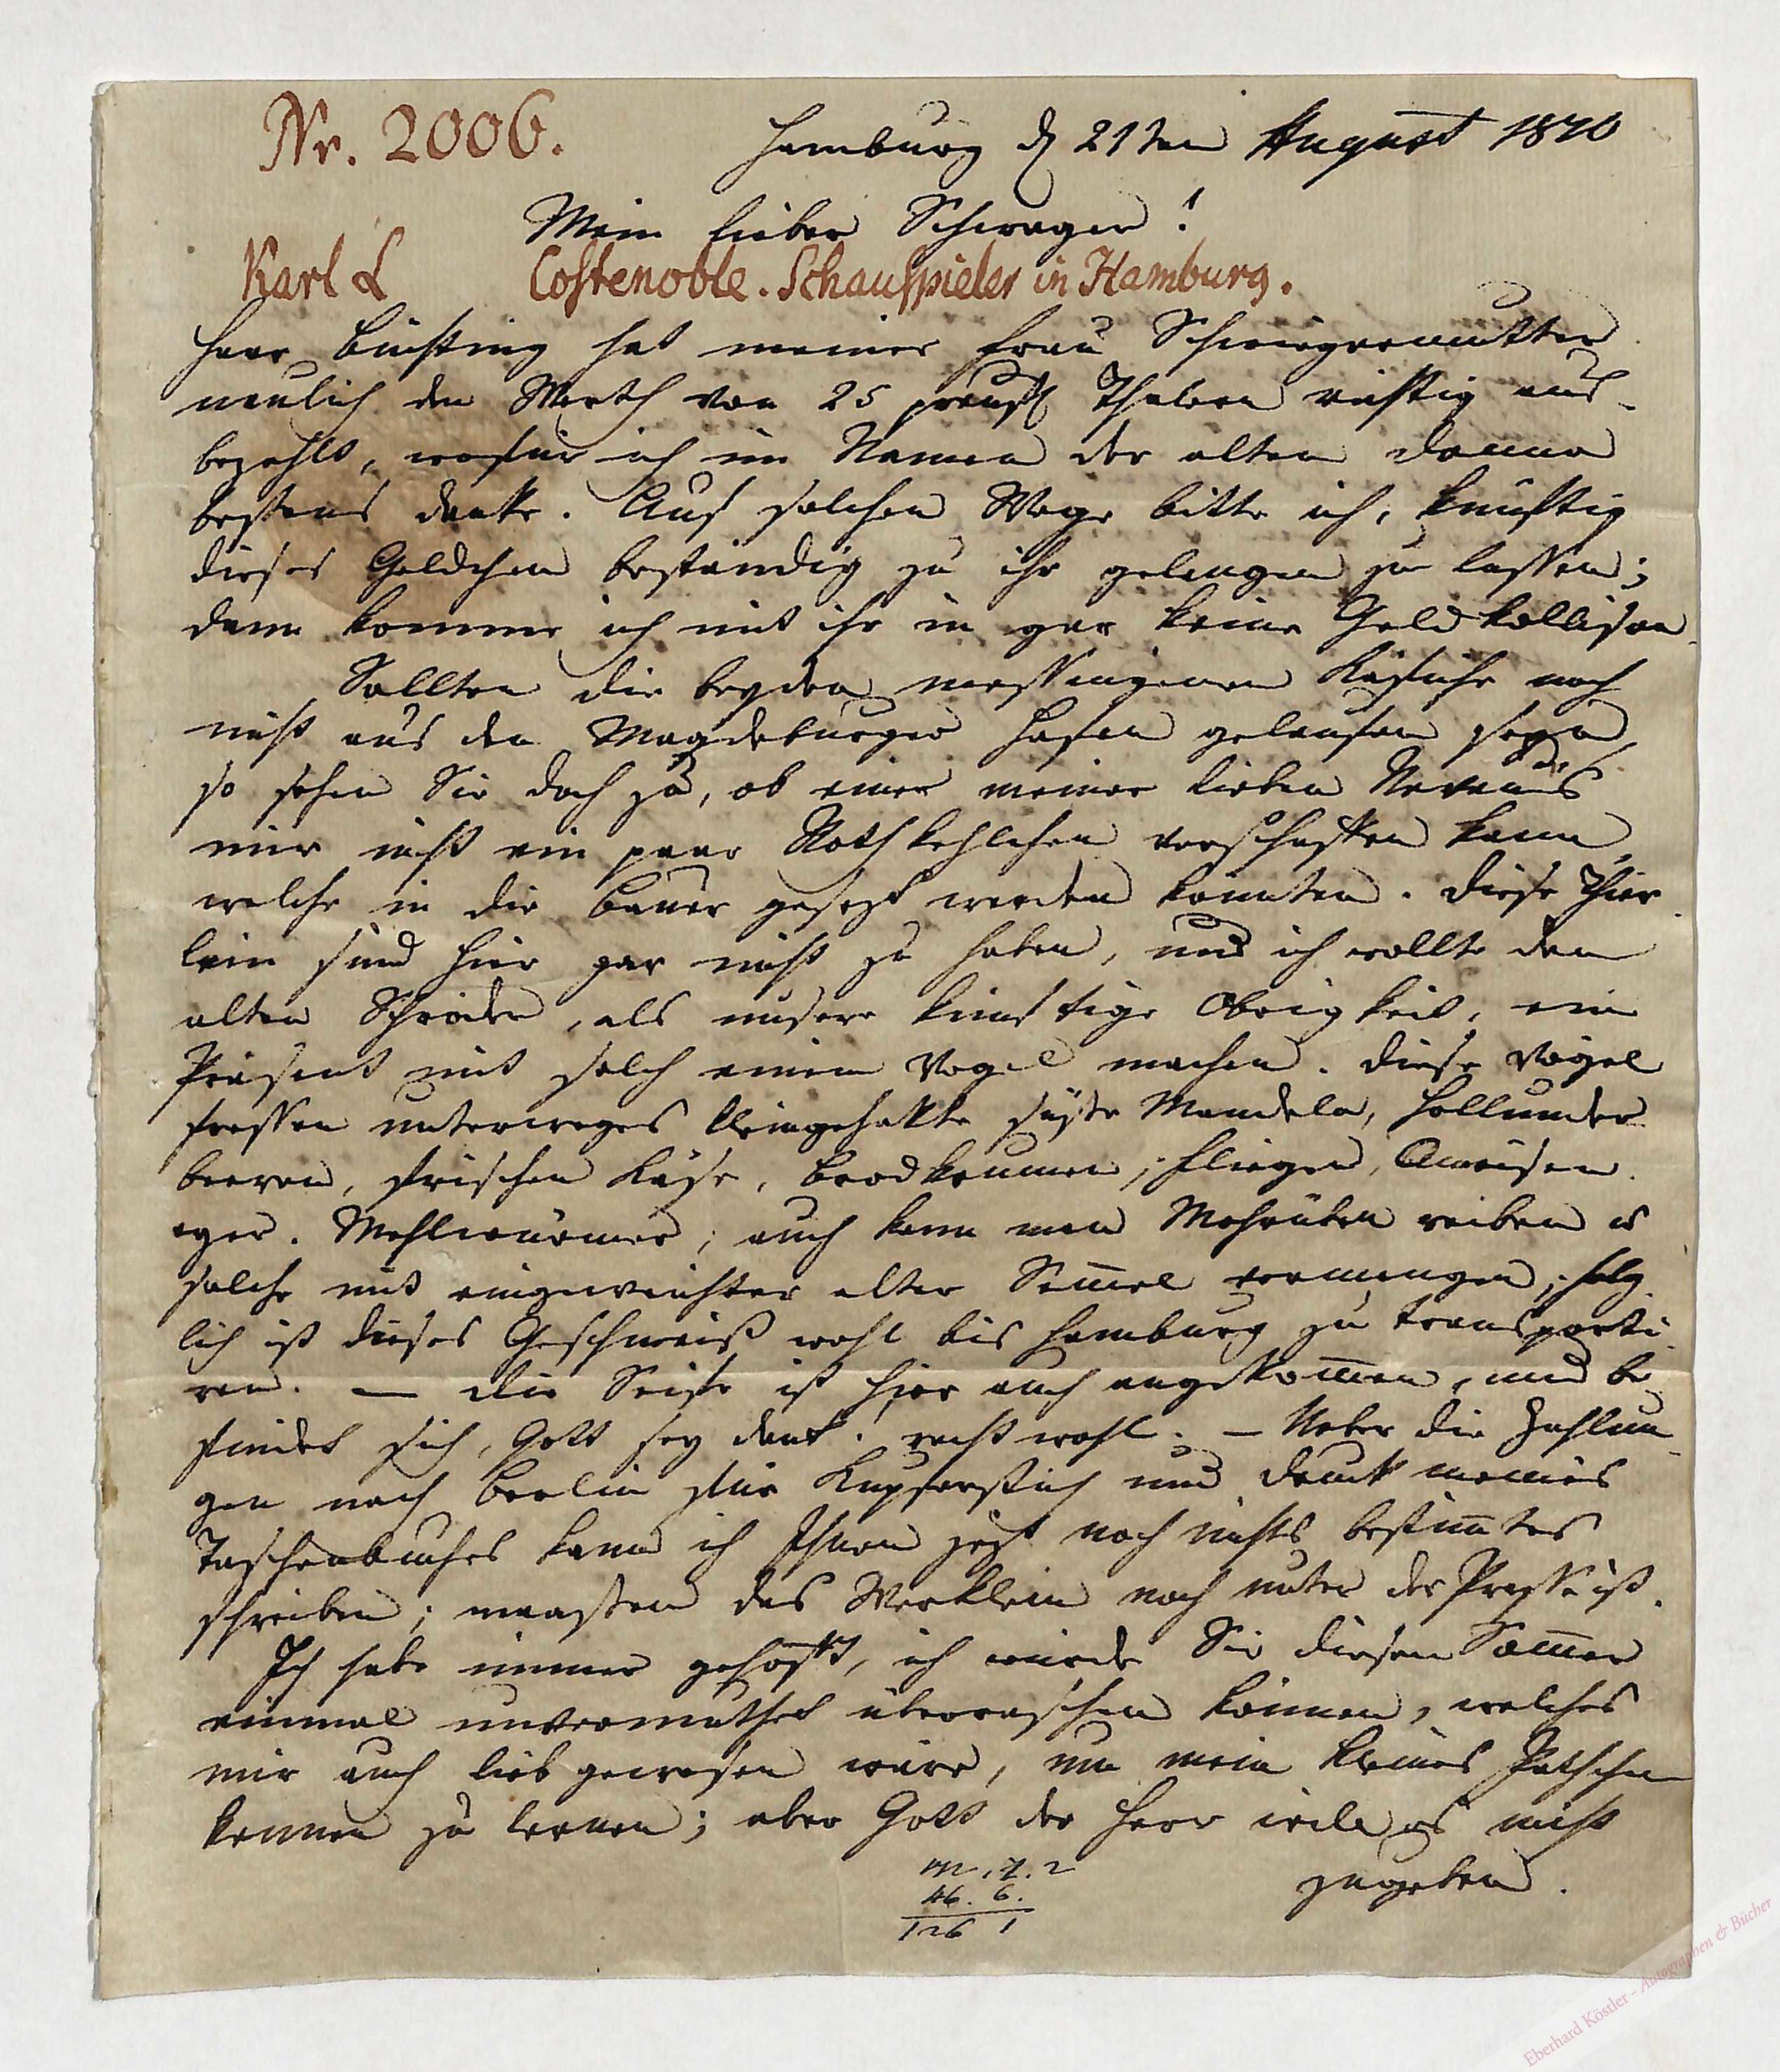 Nr. 2006.
Hamburg d 21ten August 1810
Mein lieber Schwager!
Karl L Costenoble. Schauspieler in Hamburg.
Herr Büsching hat meiner Frau Schwiegermutter
neulich den Werth von 25 preuß Thalern richtig aus-
bezahlt, wofür ich im Namen der alten Dame
bestens danke. Auf solchem Wege bitte ich, künftig
dieses Geldchen beständig zu ihr gelangen zu lassen;
denn komme ich mit ihr in gar keine Geldkollision.
Sollten die beyden messingenen Käfiche noch
nicht aus dem Magdeburger Hafen gelaufen seyn,
so sehen Sie doch zu, ob einer meiner lieben Neveus
mir nicht ein paar Rothkehlchen verschaffen kann,
welche in die Bauer gesezt werden könnten. Diese Thier
lein sind hier gar nicht zu haben, und ich wollte dem
alten Schröder, als unsere künftige Obrigkeit, ein
Präsent mit solch einem Vogel machen. Diese Vögel
fressen unterweges kleingehakte süße Mandeln, Hollunder
beeren, frischen Käse, Brodkrumen, Fliegen, Ameisen
eyer, Mehlwürmer; auch kann man Mohrüben reiben u
solche mit eingeweichter alter Semel vermengen; folg
lich ist dieses Geschmeiß wohl bis Hamburg zu transporti
ren. — Die Seife ist hier auch angekomen, und be
findet sich, Gott sey dank, recht wohl. — Ueber die Zahlun
gen nach Berlin für Kupferstich und Druck meines
Taschenbuches kann ich Ihnen jezt noch nichts bestimtes
schreiben; maaßen das Werklein noch unter der Presse ist.
Ich habe immer gehofft, ich würde Sie diesen Somer
einmal unvermuthet überraschen können, welches
mir auch lieb gewesen wäre, um mein kleines Pathchen
kennen zu lernen; aber Gott der Herr will es nicht
zugeben.
46. 6.
126 1
Eberhard Köstler - Autographen & Bücher